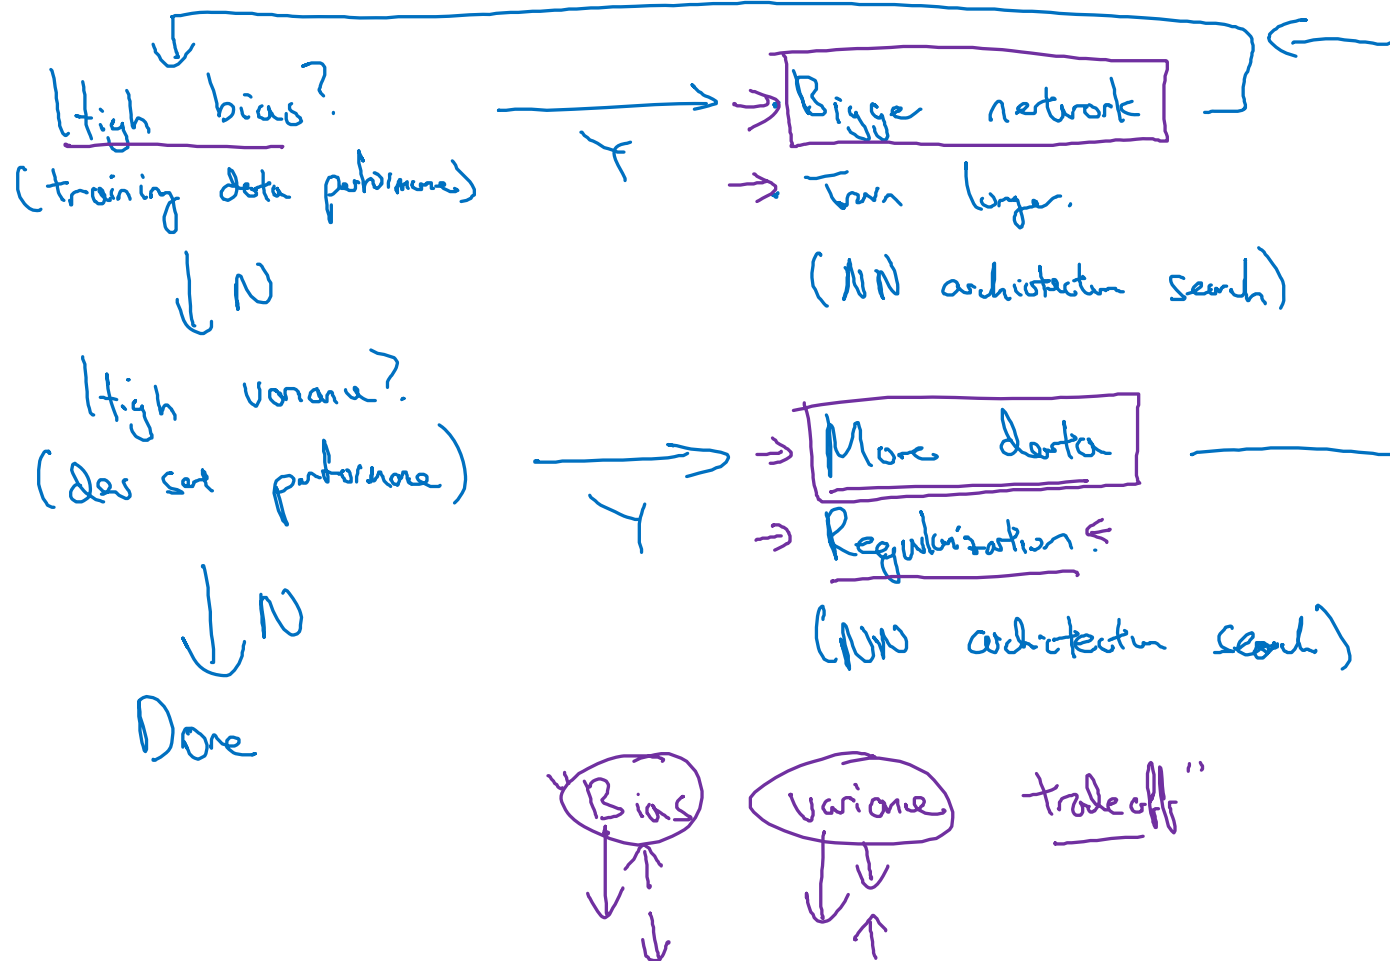 High bias?
(training data performance)
Y
Bigge network
Train longer.
(NN archictectur search)
N
High variance?
(dev set performance)
Y
More data
Regularization.
(NN archictectur search)
N
Done
"Bias variance tradeoff"